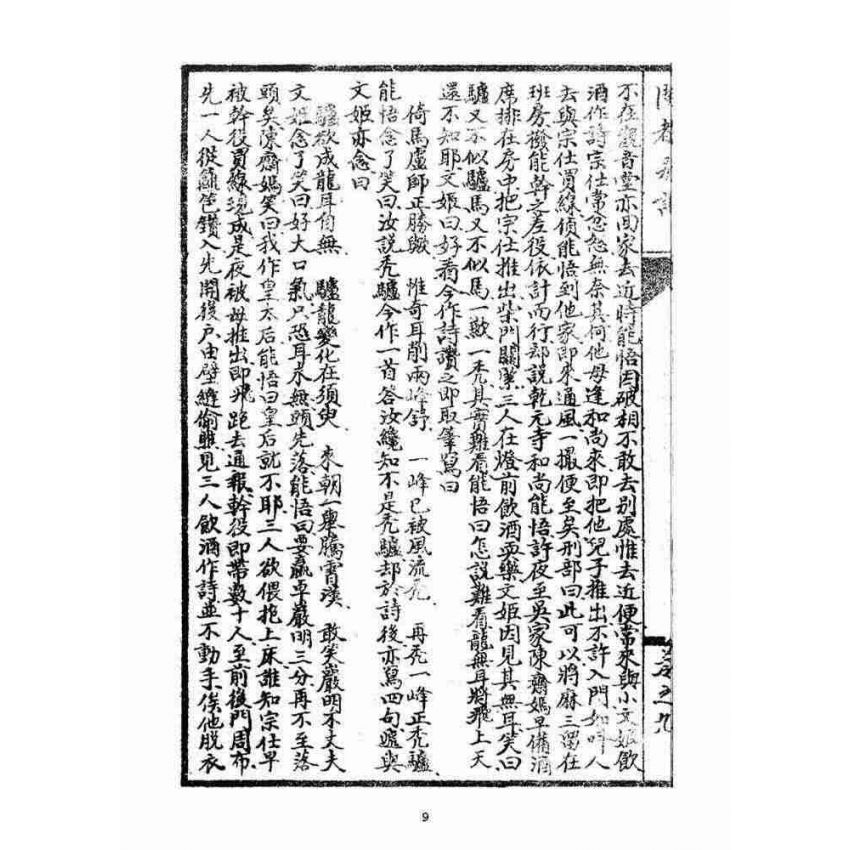 閩都別記
卷之九
不在觀音堂亦回家去近時能悟因破相不敢去別處惟去近便常來與小文娘飲
酒作詩宗仕常忿怨無奈其何他母逢和尚來即把他兒子推出不許入門如叫人
去與宗仕買線偵能悟到他家即來通風一撮便至矣刑部曰此可以將麻三留在
班房撥能幹之差役依計而行却說乾元寺和尚能悟許夜至吳家陳齋媽早備酒
席排在房中把宗仕推出柴門關禁三人在燈前飲酒取樂文姬因見其無耳笑曰
驢又不似驢馬又不似馬一歎一禿其實難看能悟曰怎說難看龍無耳將飛上天
還不知耶文姬曰好看今作詩讚之即取筆寫曰
倚馬盧師正勝蹶 惟奇耳削兩峰舒 一峰已被風流禿 再禿一峰正禿驢
能悟念了笑曰汝說禿驢今作一首答汝纔知不是禿驢却於詩後亦寫四句遞與
文姬亦念曰
驢欲成龍耳自無 驢龍變化在須臾 來朝一舉騰霄漢 敢笑嚴明不丈夫
文姬念了笑曰好大口氣只恐耳未無頭先落能悟曰要贏卓嚴明三分再不至落
頭矣陳齋媽笑曰我作皇太后能悟曰皇后就不耶三人欲偎抱上床誰知宗仕早
被幹役買線現成是夜被母推出即飛跑去通報幹役即帶數十人至前後門周布
先一人從籬笆鑽入先開後戶由壁縫偷照見三人飲酒作詩並不動手俟他脫衣
9